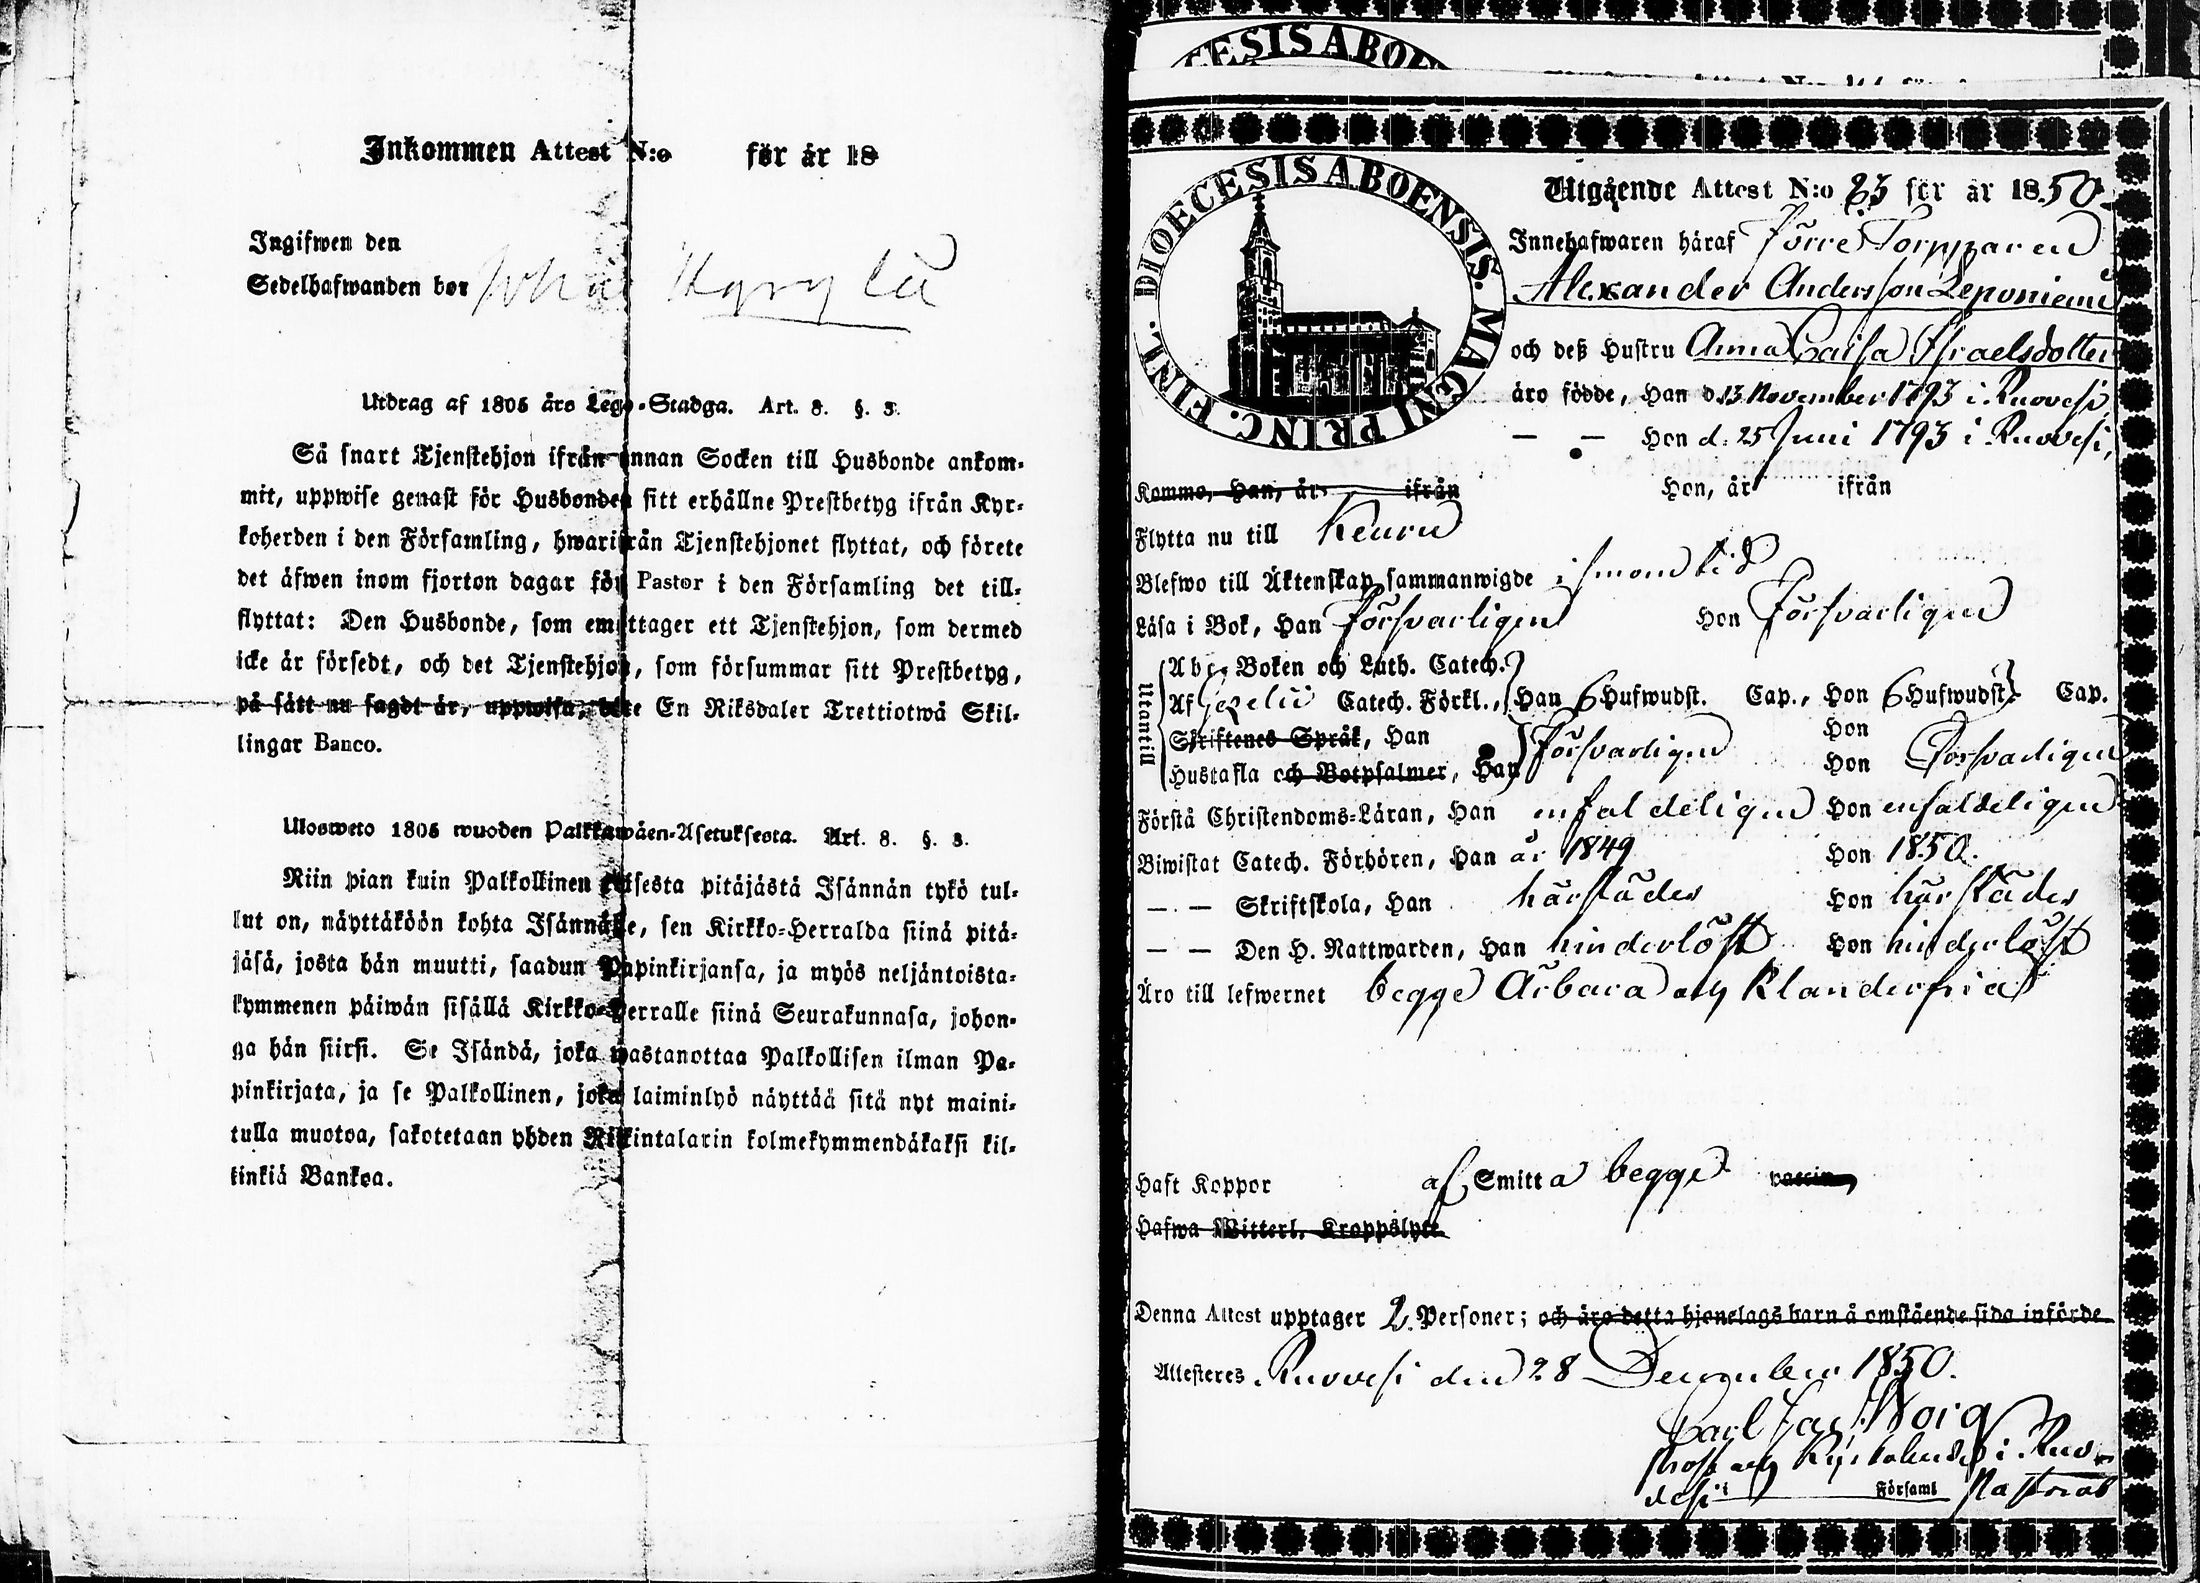 Inkommen Attest N:o för år 18
Ingifwen den
Sedelhafwanden bor
Utdrag af 1805 års Lego-Stadga. Art. 8. §. 3.
Så snart Tjenstehjon ifrån annan Socken till Husbonde ankom-
mit, uppwise genast för Husbonden sitt erhållne Prestbetyg ifrån Kyr-
koherden i den Församling, hwarifrån Tjenstehjonet flyttat, och förete
det äfwen inom fjorton dagar för Pastor i den Församling det till-
flyttat: Den Husbonde, som emottager ett Tjenstehjon, som dermed
icke är försedt, och det Tjenstehjon, som försummar sitt Prestbetyg,
på sätt nu sagdt är, uppwisa, böte En Riksdaler Trettiotwå Skil-
lingar Banco.
Ulosweto 1805 wuoden Palkkawäen-Asetuksesta. Art. 8. §. 3.
Niin pian kuin Palkollinen toisesta pitäjästä Isännän tykö tul-
lut on, näyttäköön kohta Isännälle, sen Kirkko-Herralda siinä pitä-
jäsä, josta hän muutti, saadun Papinkirjansa, ja myös neljäntoista-
kymmenen päiwän sisällä Kirkko-Herralle siinä Seurakunnasa, johon-
ga hän siirsi. Se Isändä, joka wastanottaa Palkollisen ilman Pa-
pinkirjata, ja se Palkollinen, joka laiminlyö näyttää sitä nyt maini-
tulla muotoa, sakotetaan yhden Rikintalarin kolmekymmendäkaksi kil-
linkiä Bankoa.
CESIS ABOEN
DIOECESIS ABOENSIS. MAGNI PRINC. FINL.
Utgående Attest N:o 83 för år 1850.
Innehafwaren häraf förre Torpparen
Alexander Andersson Leponiemi
och deß Hustru Anna Caisa Israelsdotter
äro födde, Han d. 13 November 1793 i Ruovesi
— — Hon d. 25 Juni 1793 i Ruovesi,
Komme, Han, år ifrån Hon, år ifrån
Flytta nu till Keuru
Blefwo till Äktenskap sammanwigde i sinom tid
Läsa i Bok, Han Försvarligen Hon Försvarligen
Utantill
Abc, Boken och Luth. Catech.
Af Gezelii Catech. Förkl., Han 6 Hufwudst. Cap., Hon 6 Hufwudst. Cap.
Skriftenes Språk, Han Hon
Hustafla och Botpsalmer, Han Försvarligen Hon Försvarligen
Förstå Christendoms-Läran, Han enfaldeligen Hon enfaldeligen
Biwistat Catech. Förhören, Han år 1849 Hon 1850.
— — Skriftskola, Han härstädes Hon härstädes
— — Den H. Nattwarden, Han hinderlöst Hon hinderlöst
Äro till lefwernet begge Ärbara och Klanderfria
Haft Koppor af Smitta begge vaccin
Hafwa Witterl. Kroppslyte
Denna Attest upptager 2 Personer; och äro detta hjonelags barn å omstående sida införde
Attesteres Ruovesi den 28 December 1850.
Carl Jac. Borg
Prost och Kyrkoherde i Ruo-
vesi Församl Pastorat